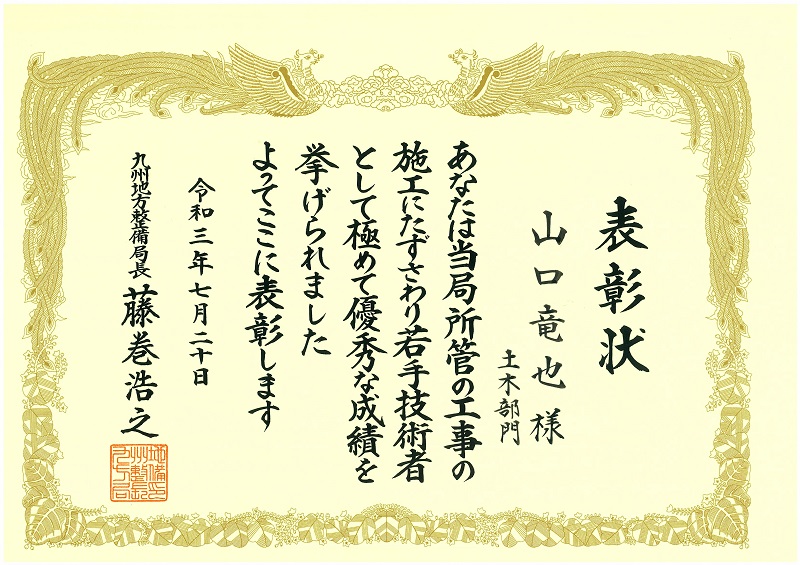 表彰状
山口竜也様
土木部門
あなたは当局所管の工事の
施工にたずさわり若手技術者
として極めて優秀な成績を
挙げられました
よってここに表彰します
令和三年七月二十日
九州地方整備局長 藤巻浩之